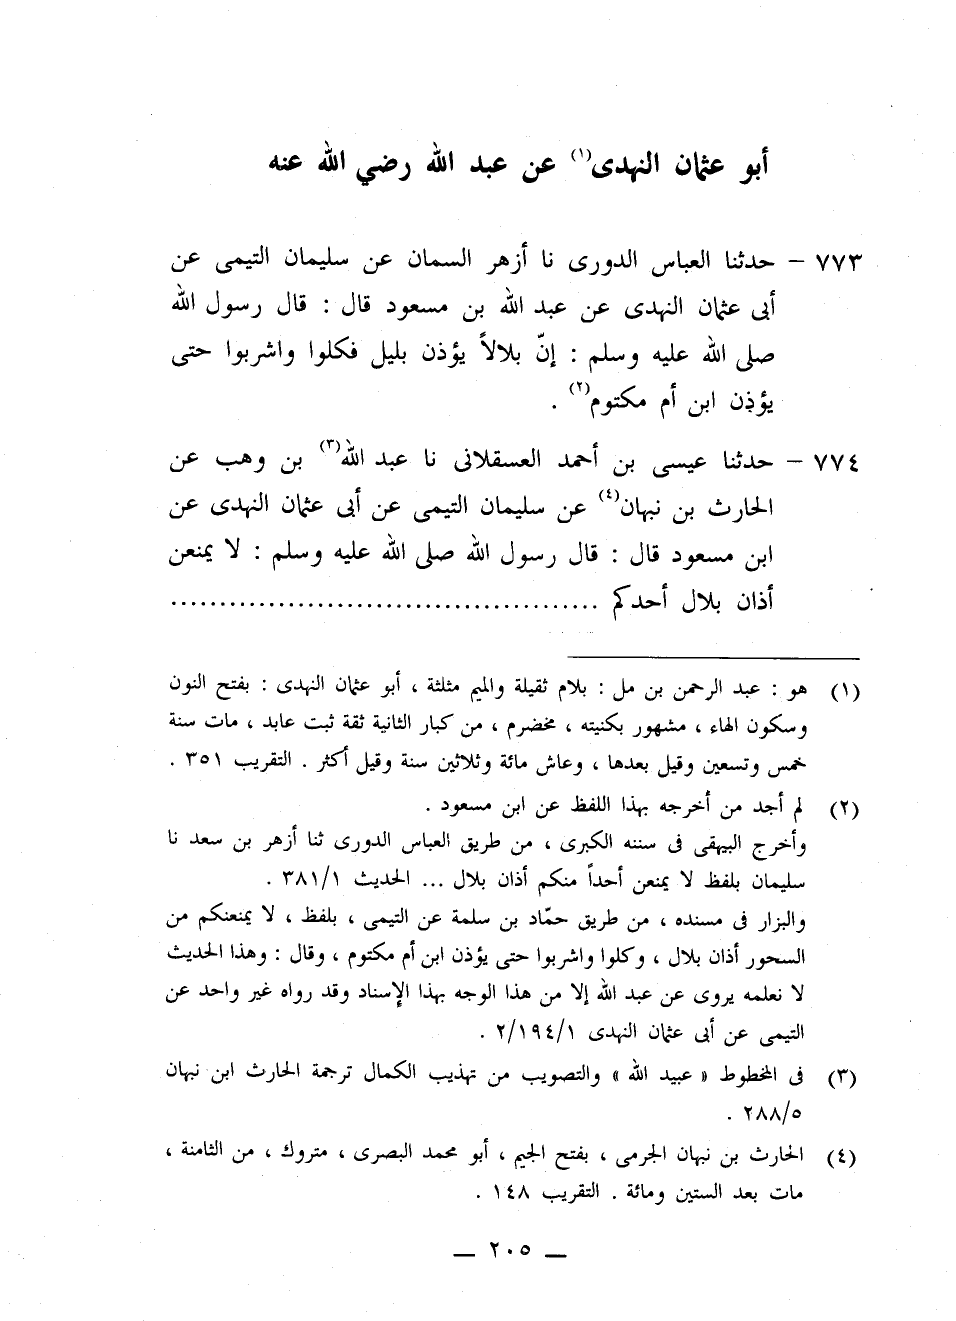 أبو عثمان النهدى(١) عن عبد الله رضي الله عنه
٧٧٣ – حدثنا العباس الدورى نا أزهر السمان عن سليمان التيمى عن
أبى عثمان النهدى عن عبد الله بن مسعود قال : قال رسول الله
صلى الله عليه وسلم : إنّ بلالاً يؤذن بليل فكلوا واشربوا حتى
يؤذن ابن أم مكتوم(٢) .
٧٧٤ – حدثنا عيسى بن أحمد العسقلانى نا عبد الله(٣) بن وهب عن
الحارث بن نبهان(٤) عن سليمان التيمى عن أبى عثمان النهدى عن
ابن مسعود قال : قال رسول الله صلى الله عليه وسلم : لا يمنعن
أذان بلال أحدكم ...........................................
(١) هو : عبد الرحمن بن مل : بلام ثقيلة والميم مثلثة ، أبو عثمان النهدى : بفتح النون
وسكون الهاء ، مشهور بكنيته ، مخضرم ، من كبار الثانية ثقة ثبت عابد ، مات سنة
خمس وتسعين وقيل بعدها ، وعاش مائة وثلاثين سنة وقيل أكثر . التقريب ٣٥١ .
(٢) لم أجد من أخرجه بهذا اللفظ عن ابن مسعود .
وأخرج البيهقى فى سننه الكبرى ، من طريق العباس الدورى ثنا أزهر بن سعد نا
سليمان بلفظ لا يمنعن أحداً منكم أذان بلال ... الحديث ٣٨١/١ .
والبزار فى مسنده ، من طريق حمّاد بن سلمة عن التيمى ، بلفظ ، لا يمنعنكم من
السحور أذان بلال ، وكلوا واشربوا حتى يؤذن ابن أم مكتوم ، وقال : وهذا الحديث
لا نعلمه يروى عن عبد الله إلا من هذا الوجه بهذا الإسناد وقد رواه غير واحد عن
التيمى عن أبى عثمان النهدى ٢/١٩٤/١ .
(٣) فى المخطوط « عبيد الله » والتصويب من تهذيب الكمال ترجمة الحارث ابن نبهان
٢٨٨/٥ .
(٤) الحارث بن نبهان الجرمى ، بفتح الجيم ، أبو محمد البصرى ، متروك ، من الثامنة ،
مات بعد الستين ومائة . التقريب ١٤٨ .
— ٢٠٥ —